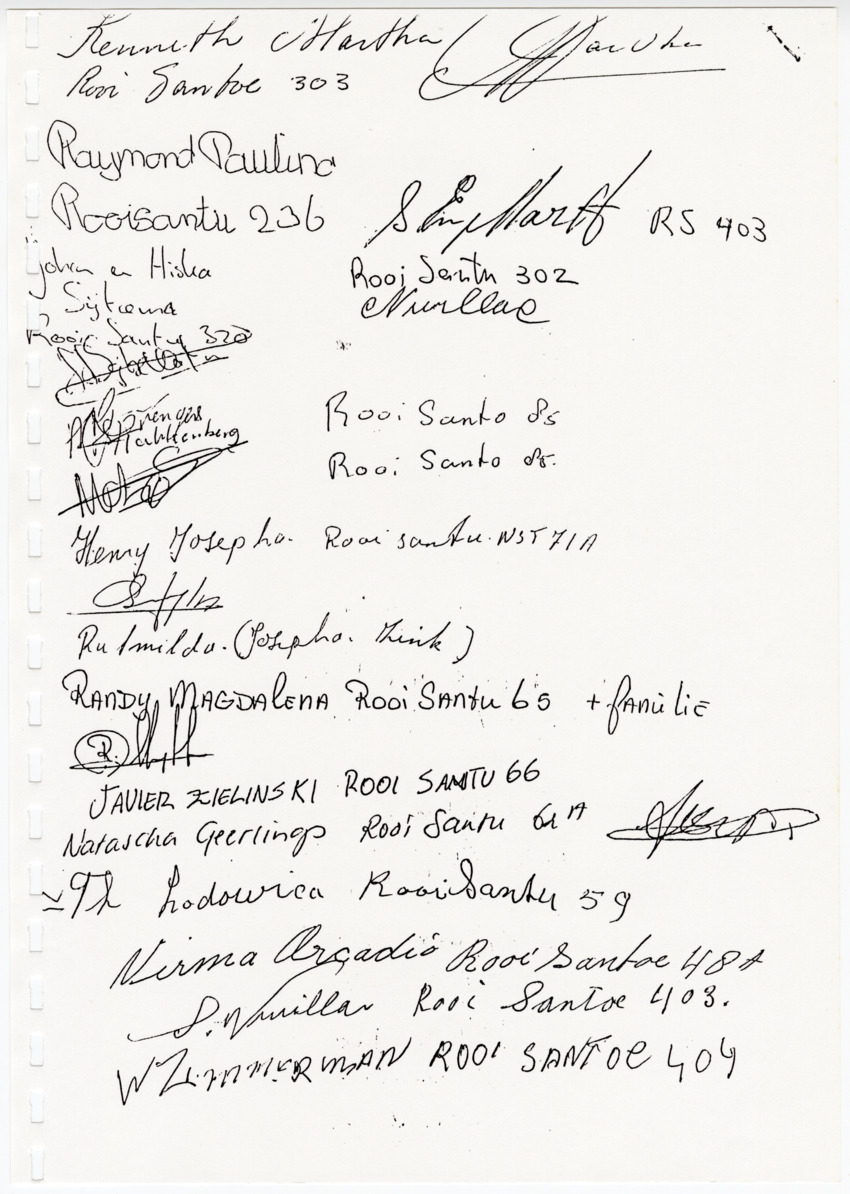 Kenneth Martha
Rooi Santoe 303
Raymond Paulina
Rooisantu 236
RS 403
Johan en Hiska
Sijtsema
Rooi Santu 320
Rooi Santu 302
Rooi Santo 85
Rooi Santo 85.
Henry Josepha. Rooi santu. NST 71A
Rutmilda. (Josepha. Zink)
RANDY MAGDALENA ROOI SANTU 65 + familie
JAVIER ZIELINSKI ROOI SANTU 66
Natascha Geerlings Rooi Santu 61A
Th Lodowica Rooi Santu 59
Nirma Arcadio Rooi Santoe 48A
Rooi Santoe 403.
W ZIMMERMAN ROOI SANTOE 404